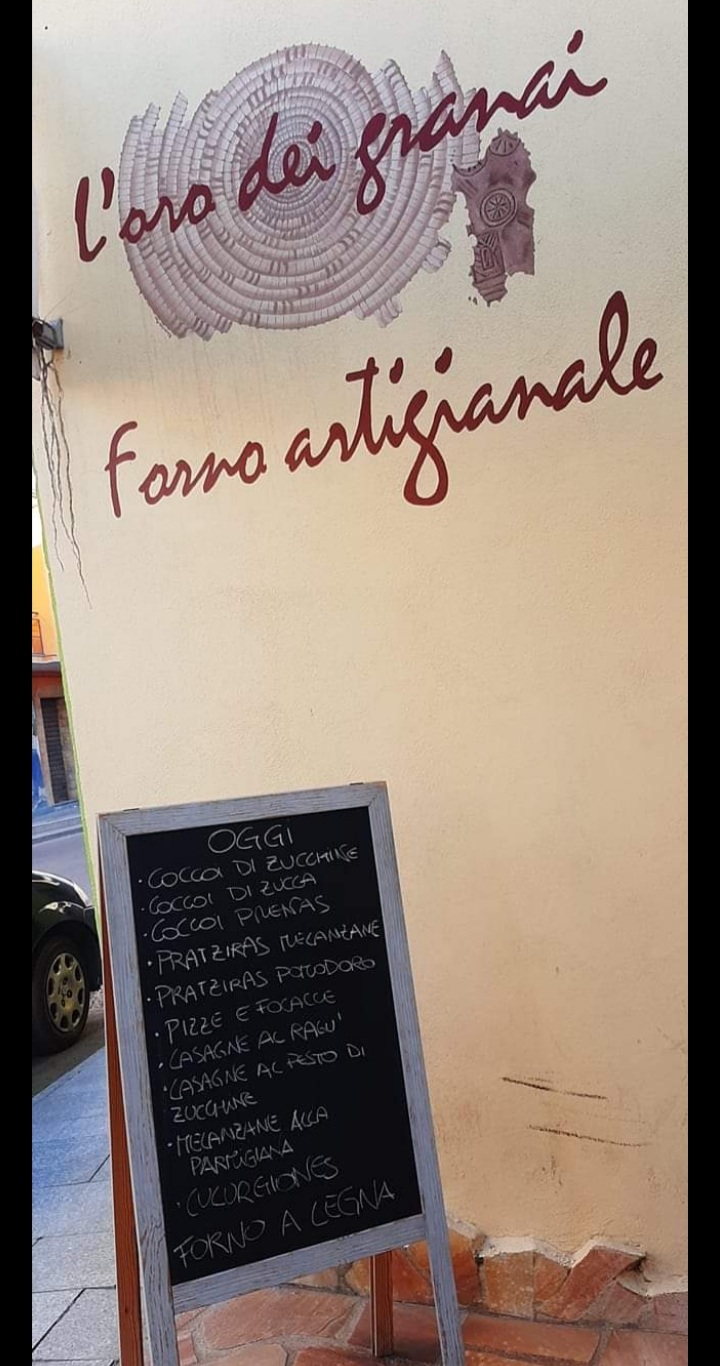 l'oro dei granai
Forno artigianale
OGGI
• COCCOI DI ZUCCHINE
• COCCOI DI ZUCCA
• COCCOI PRENTAS
• PRATZIRAS MELANZANE
• PRATZIRAS POMODORO
• PIZZE E FOCACCE
• LASAGNE AL RAGU'
• LASAGNE AL PESTO DI
ZUCCHINE
• MELANZANE ALLA
PARMIGIANA
• CULURGIONES
FORNO A LEGNA